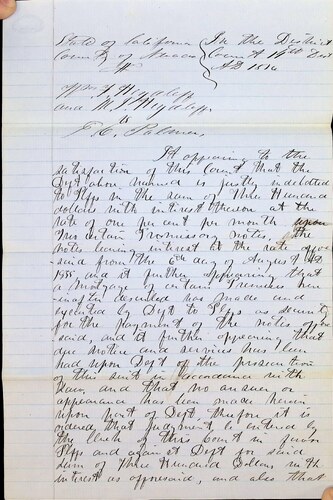 State of California } In the District
County of Nevada } Court, 14th Dist
ss } AD 1856
Wm F Heyglesf
and M. J. Heyglesf
vs
E. C. Palmer
It appearing to the
satisfaction of this Court that the
Dept above named is justly indebted
to Plffs in the sum of Three Hundred
dollars with interest thereon at the
rate of one per cent per month upon
two certain Promissory Notes, the
Notes bearing interest to the rate afore
said from the 6th day of August AD
1855, and it further appearing that
a Mortgage of certain Premises herein
inafter described was made and
executed by Dept to Plffs as security
for the payment of the notes afore
said, and it further appearing that
due notice and service has been
had upon Dept of the prosecution
of this suit in accordance with
Law, and that no answer or
appearance has been made herein
upon part of Dept, therefore it is
ordered that Judgment be entered by
the Clerk of this Court in favor
Plffs and against Dept for said
sum of Three Hundred Dollars, with
interest as aforesaid, and also that